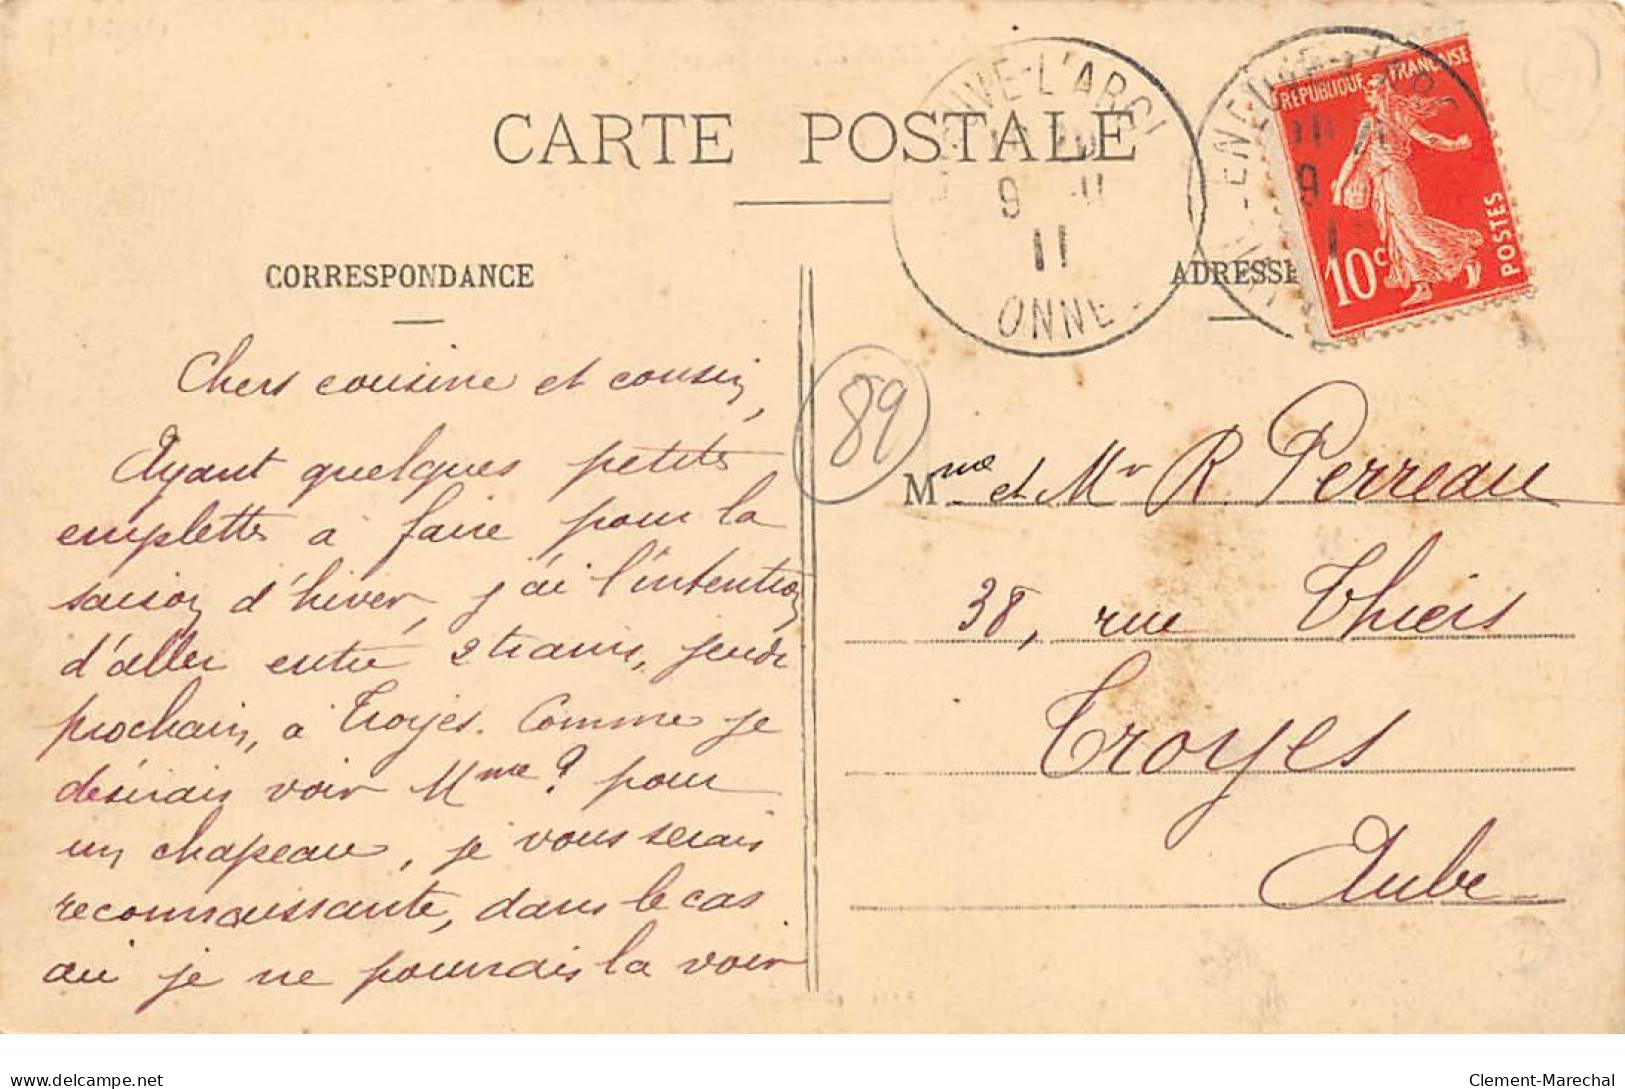 CARTE POSTALE
NVE-L'ARCH
9 -11
11
ONNE
RÉPUBLIQUE FRANÇAISE
10c
POSTES
CORRESPONDANCE
ADRESSE
Chers cousine et cousin,
Ayant quelques petites
emplettes à faire pour la
saison d'hiver, j'ai l'intention
d'aller entre 2 trains, jeudi
prochain, à Troyes. Comme je
désirais voir Mme ? pour
un chapeau, je vous serais
reconnaissante, dans le cas
où je ne pourrais la voir
89
Mme et Mr R. Perreau
38, rue Thiers
Troyes
Aube
delcampe.net
Clement-Marechal